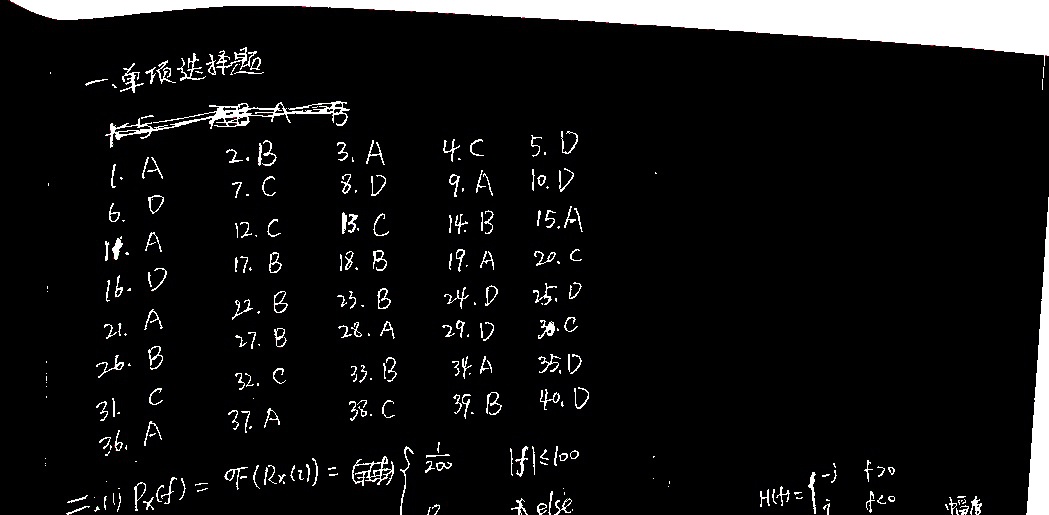 一、单项选择题
1. A 2. B 3. A 4. C 5. D
6. D 7. C 8. D 9. A 10. D
11. A 12. C 13. C 14. B 15. A
16. D 17. B 18. B 19. A 20. C
21. A 22. B 23. B 24. D 25. D
26. B 27. B 28. A 29. D 30. C
31. C 32. C 33. B 34. A 35. D
36. A 37. A 38. C 39. B 40. D
二、(1) Px(f) = F(Rx(τ)) = { 1/200 |f|≤100
else
H(f) = { -j f>0
j f<0
幅度